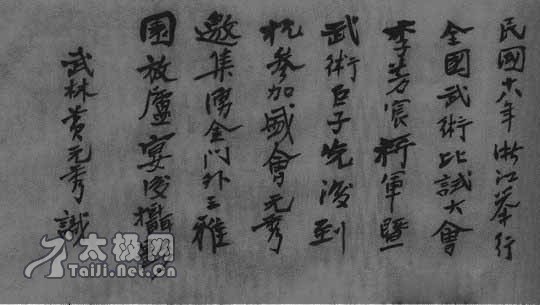 民國十八年浙江舉行
全國武術比試大會
李芳宸將軍暨
武術巨子先後到
杭參加盛會元秀
邀集湧金門外三雅
園放廬宴後攝影
武林黃元秀識
太极网
TaiJi.Net.Cn